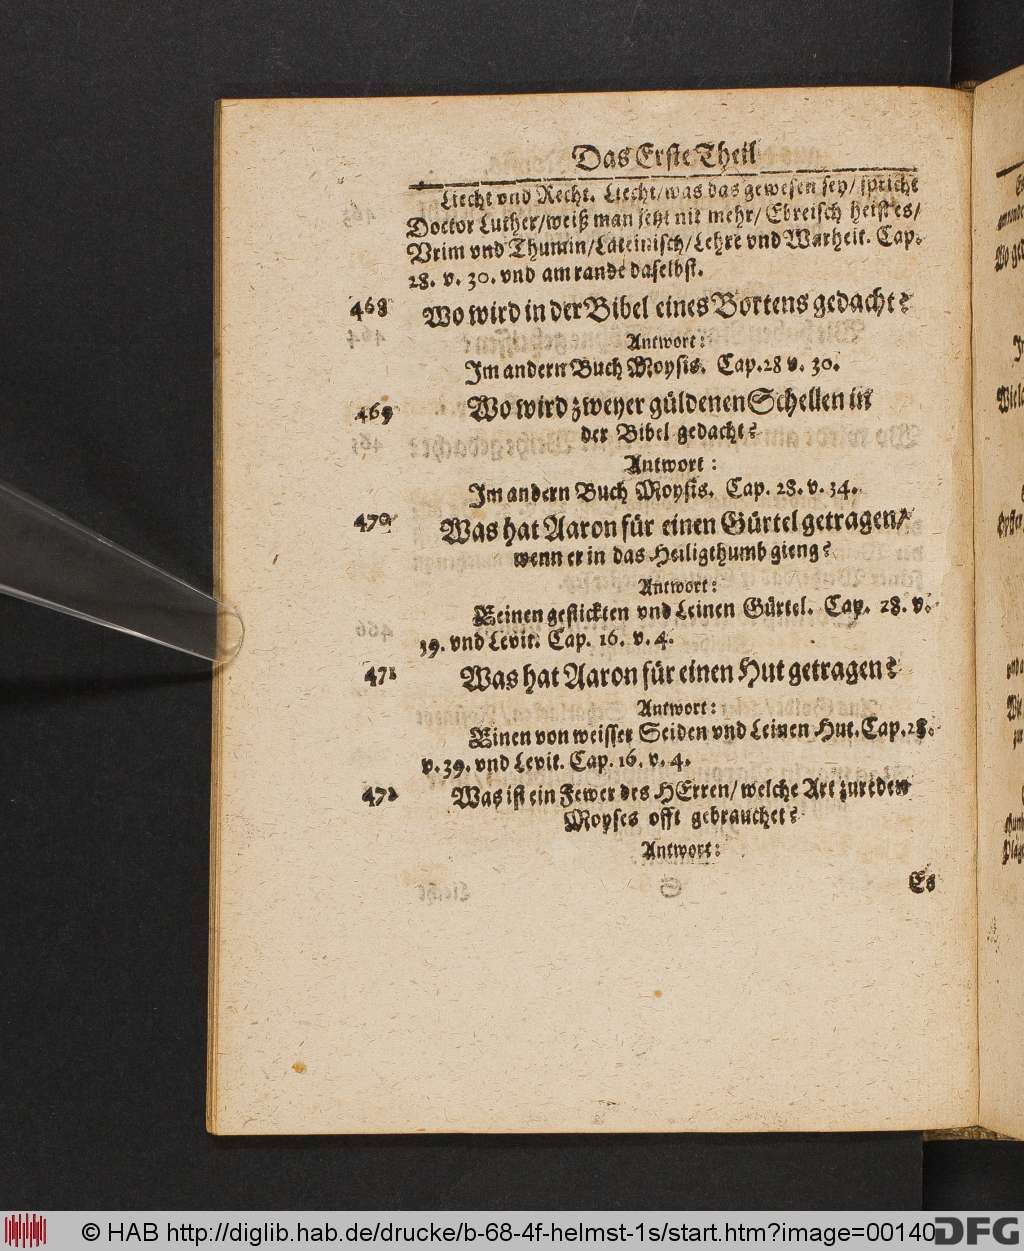 Das Erste Theil
Liecht vnd Recht. Liecht/was das gewesen sey/ spricht
Doctor Luther/weiß man jetzt nit mehr/ Ebreisch heist es/
Vrim vnd Thumin/Lateinisch/Lehre vnd Warheit. Cap.
28. v. 30. vnd am rande daselbst.
468 Wo wird in der Bibel eines Bortens gedacht?
Antwort:
Im andern Buch Moysis. Cap.28 v. 30.
469 Wo wird zweyer güldenen Schellen in
der Bibel gedacht?
Antwort:
Im andern Buch Moysis. Cap. 28. v. 34.
470 Was hat Aaron für einen Gürtel getragen/
wenn er in das Heiligthumb gieng?
Antwort:
Einen gestickten vnd Leinen Gürtel. Cap. 28. v.
39. vnd Levit. Cap. 16. v. 4.
471 Was hat Aaron für einen Hut getragen?
Antwort:
Einen von weisser Seiden vnd Leinen Hut. Cap. 28.
v. 39. vnd Levit. Cap. 16. v. 4.
472 Was ist ein Fewer des HErren/ welche Art zu reden
Moyses offt gebrauchet?
Antwort:
Es
© HAB http://diglib.hab.de/drucke/b-68-4f-helmst-1s/start.htm?image=00140
DFG